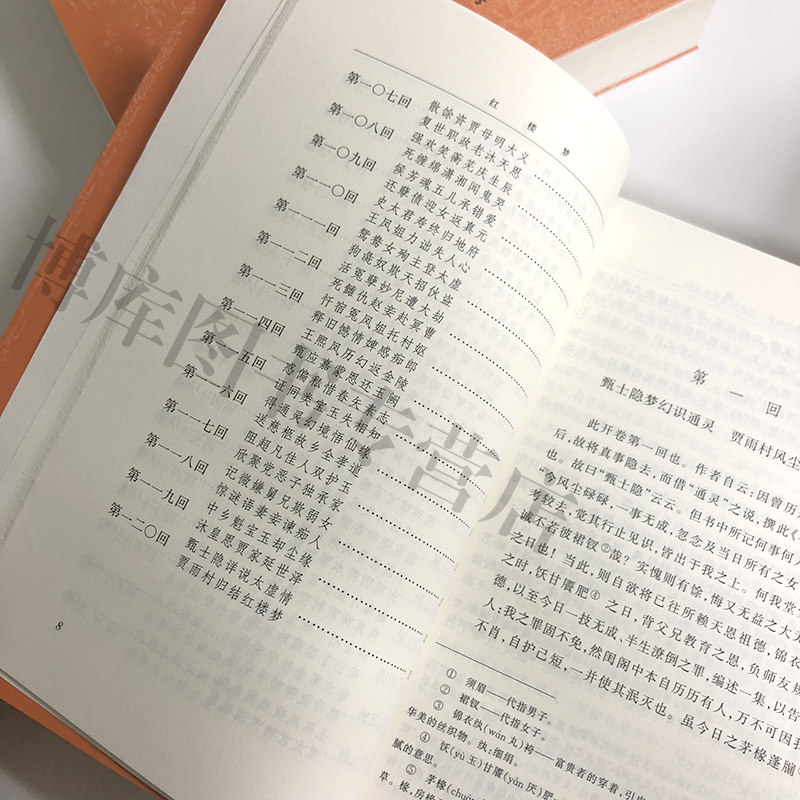 红楼梦
第一〇七回 散馀资贾母明大义
复世职政老沐天恩
第一〇八回 强欢笑蘅芜庆生辰
死缠绵潇湘闻鬼哭
第一〇九回 候芳魂五儿承错爱
还孽债迎女返真元
第一一〇回 史太君寿终归地府
王凤姐力诎失人心
第一一一回 鸳鸯女殉主登太虚
狗彘奴欺天招伙盗
第一一二回 活冤孽妙尼遭大劫
死雠仇赵妾赴冥曹
第一一三回 忏宿冤凤姐托村妪
释旧憾情婢感痴郎
第一一四回 王熙凤历幻返金陵
甄应嘉蒙恩还玉阙
第一一五回 惑偏私惜春矢素志
证同类宝玉失相知
第一一六回 得通灵幻境悟仙缘
送慈柩故乡全孝道
第一一七回 阻超凡佳人双护玉
欣聚党恶子独承家
第一一八回 记微嫌舅兄欺弱女
惊谜语妻妾谏痴人
第一一九回 中乡魁宝玉却尘缘
沐皇恩贾家延世泽
第一二〇回 甄士隐详说太虚情
贾雨村归结红楼梦
8
第一回
甄士隐梦幻识通灵 贾雨村风尘
此开卷第一回也。作者自云：因曾历
后，故将真事隐去，而借“通灵”之说，撰此《
也。故曰“甄士隐”云云。但书中所记何事何
“今风尘碌碌，一事无成，忽念及当日所有之女
考较去，觉其行止见识，皆出于我之上。何我堂
诚不若彼裙钗②哉？实愧则有馀，悔又无益之大
之日也！当此，则自欲将已往所赖天恩祖德，锦衣
之时，饫甘餍肥④之日，背父兄教育之恩，负师友规
德，以至今日一技无成、半生潦倒之罪，编述一集，以告
人：我之罪固不免，然闺阁中本自历历有人，万不可因我
不肖，自护己短，一并使其泯灭也。虽今日之茅椽蓬牖
① 须眉——代指男子。
② 裙钗——代指女子。
③ 锦衣纨(wán 丸)袴——富贵者的穿着，引
华美的丝织物。纨：细绢。
④ 饫(yù 玉)甘餍(yàn 厌)肥
腻的意思。
⑤ 茅椽(chuán
草。椽，房椽
博库图书专营店